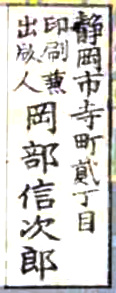 静岡市寺町貳丁目
印刷兼
出版人
岡部信次郎